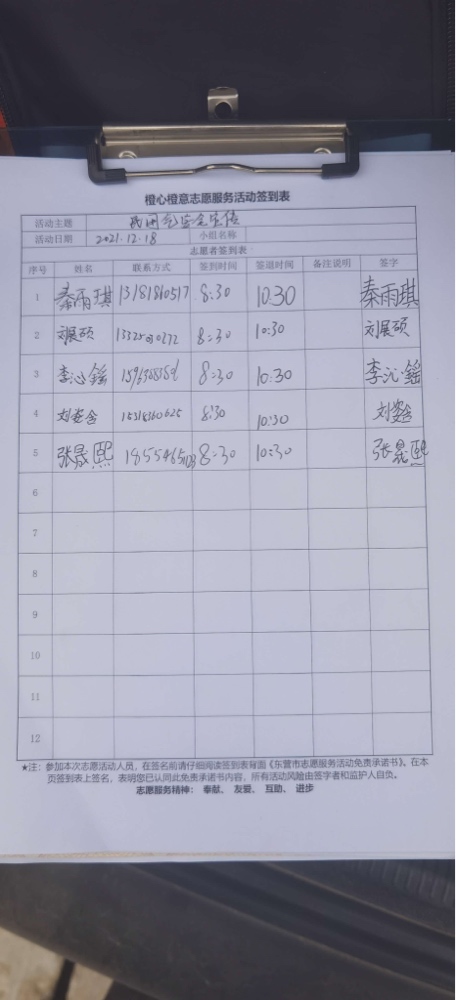 橙心橙意志愿服务活动签到表
活动主题 民用气安全宣传
活动日期 2021.12.18 小组名称
志愿者签到表
序号 姓名 联系方式 签到时间 签退时间 备注说明 签字
1 秦雨琪 13181810517 8:30 10:30 秦雨琪
2 刘展硕 8:30 10:30 刘展硕
3 李沁鎐 8:30 10:30 李沁鎐
4 刘姿含 15318360625 8:30 10:30 刘姿含
5 张晟熙 8:30 10:30 张晟熙
6
7
8
9
10
11
12
★注：参加本次志愿活动人员，在签名前请仔细阅读签到表背面《东营市志愿服务活动免责承诺书》。在本
页签到表上签名，表明您已认同此免责承诺书内容，所有活动风险由签字者和监护人自负。
志愿服务精神： 奉献、 友爱、 互助、 进步